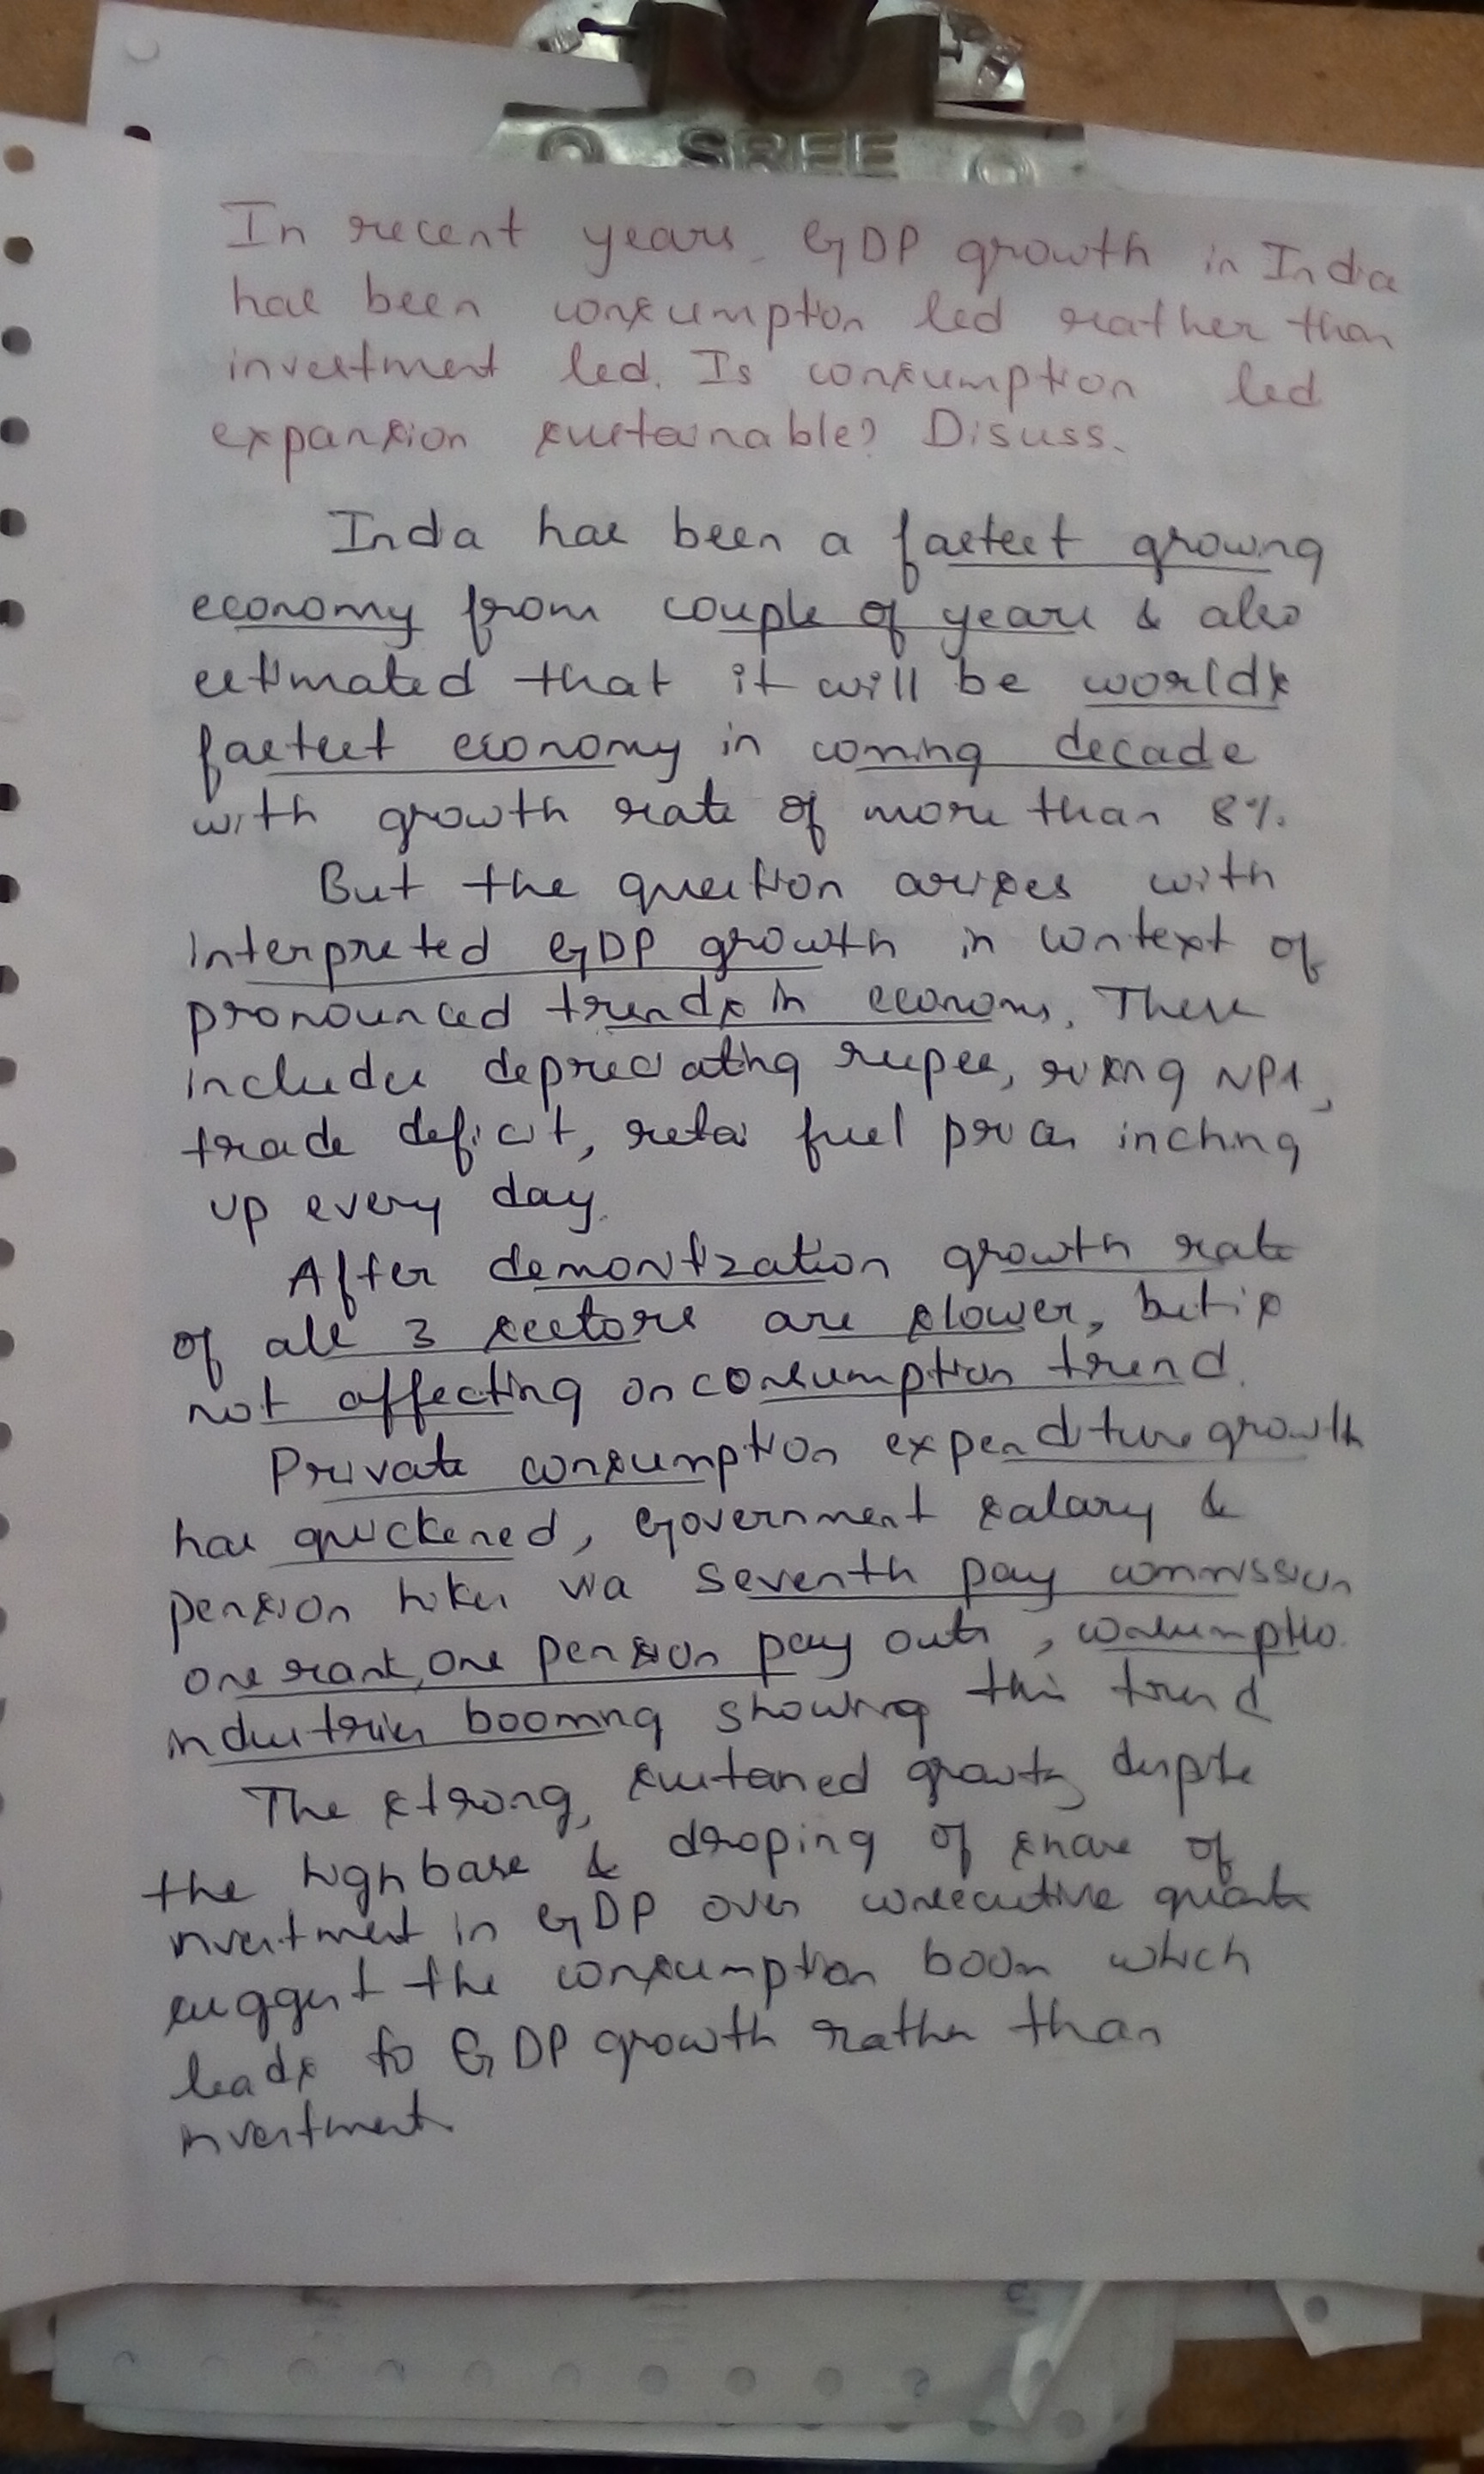 SREE
In recent years, GDP growth in India
has been consumption led rather than
investment led. Is consumption led
expansion sustainable? Disuss.
India has been a fastest growing
economy from couple of years & also
estimated that it will be worlds
fastest economy in coming decade
with growth rate of more than 8%.
But the question arises with
interpreted GDP growth in context of
pronounced trends in economy. These
includes depreciating rupee, rising NPA,
trade deficit, retai fuel prices inching
up every day.
After demonitization growth rate
of all 3 sectors are slower, but is
not affecting on consumption trend.
Private consumption expenditure growth
has quickened, Government salary &
pension hikes via seventh pay commission
one rank, one pension pay outs, consumptio
industries booming showing this trend
The strong, sustained growth despite
the high base & droping of share of
investment in GDP over consecutive
suggest the consumption boom which
leads to GDP growth rather than
investment